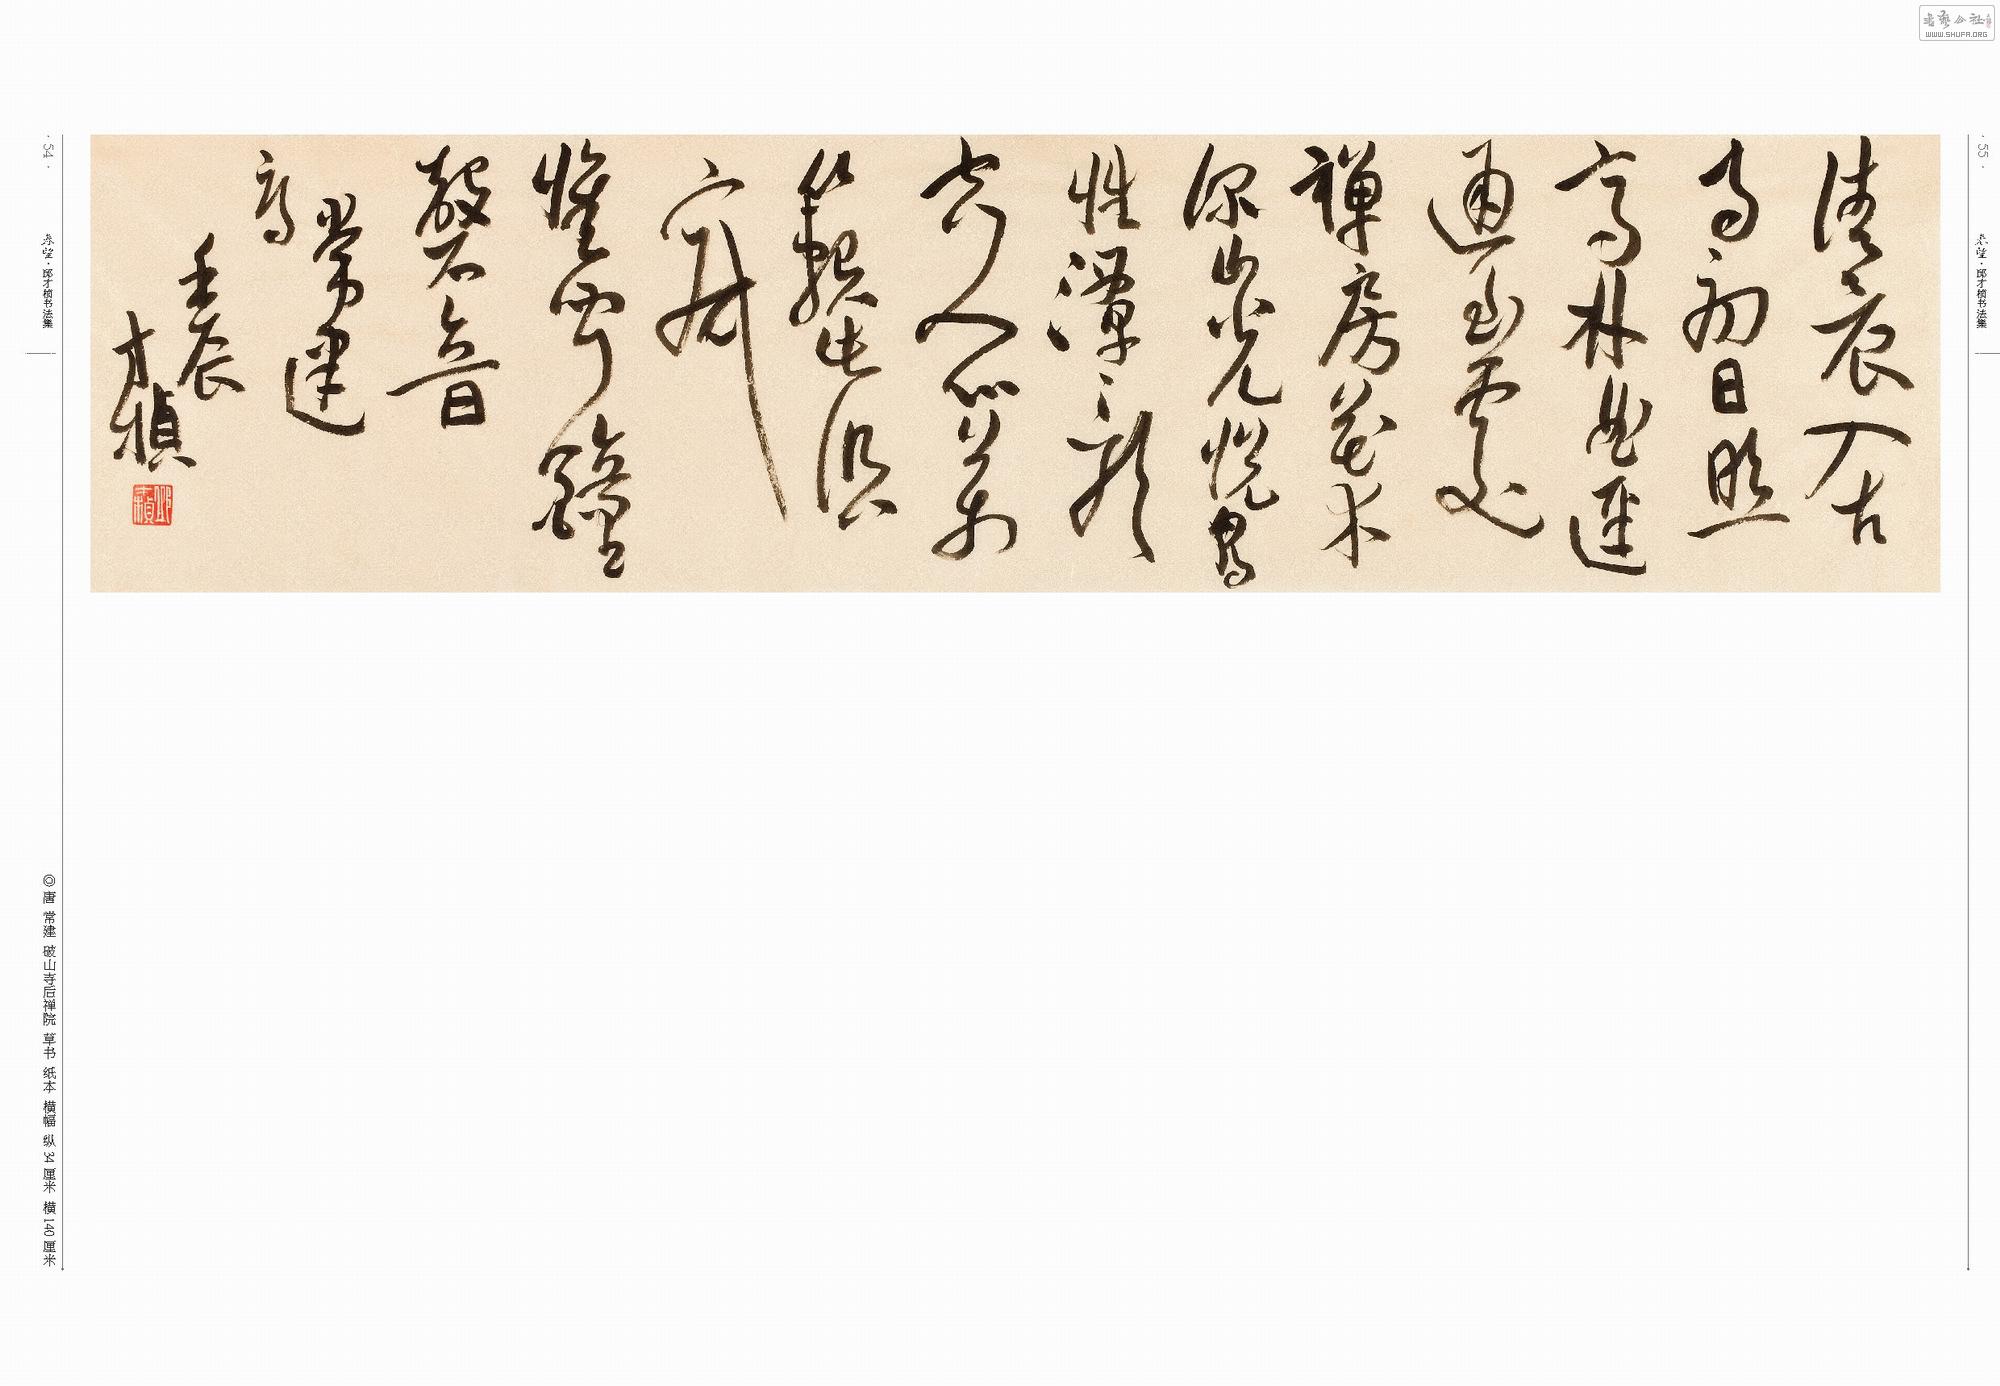 清晨入古
寺初日照
高林曲逕
通幽處
禪房花木
深山光悦鳥
性潭影
空人心萬
籟此俱
寂
惟聞鐘
磬音
常建
壬辰
才楨
· 54 ·
· 邱才桢书法集
◎ 唐 常建 破山寺后禅院 草书 纸本 横幅 纵 34 厘米 横 140 厘米
· 55 ·
· 邱才桢书法集
书艺公社
WWW.SHUFA.ORG